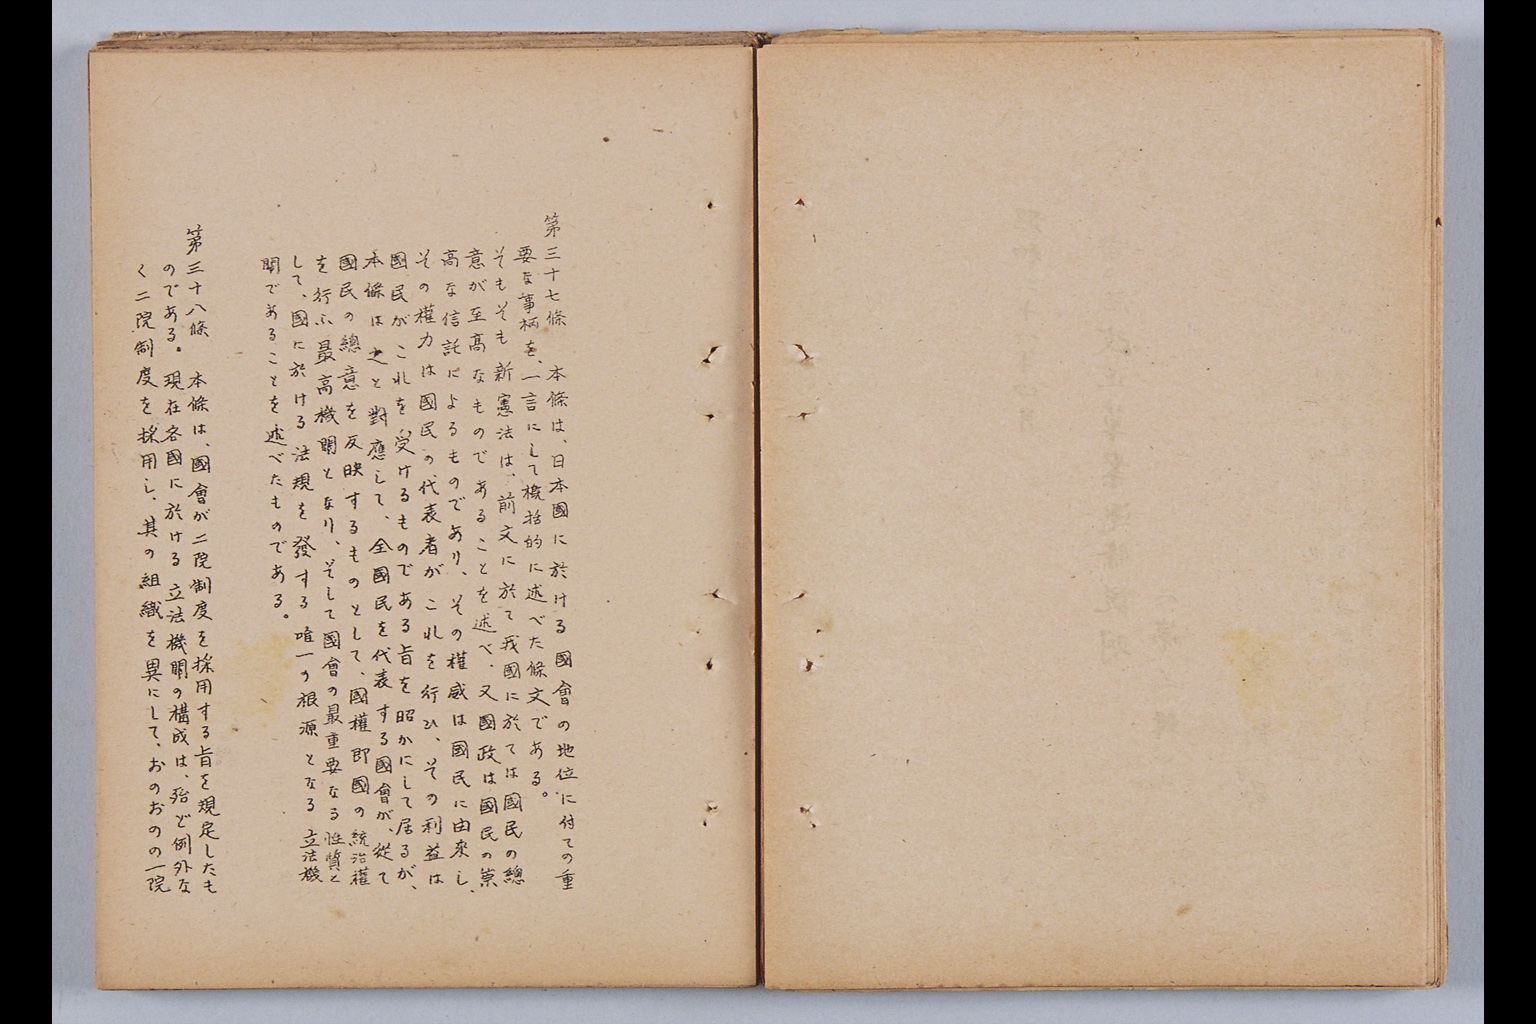 第三十七條　本條は、日本國に於ける國會の地位に付ての重
要な事柄を、一言にして概括的に述べた條文である。
そもそも新憲法は、前文に於て我國に於ては國民の總
意が至高なものであることを述べ、又國政は國民の崇
高な信託によるものであり、その權威は國民に由來し、
その權力は國民の代表者がこれを行ひ、その利益は
國民がこれを受けるものである旨を昭かにして居るが、
本條は之と對應して、全國民を代表する國會が、從て
國民の總意を反映するものとして、國權即國の統治權
を行ふ最高機關となり、そして國會の最重要なる性質と
して、國に於ける法規を發する唯一の根源となる立法機
關であることを述べたものである。
第三十八條　本條は、國會が二院制度を採用する旨を規定したも
のである。現在各國に於ける立法機關の構成は、殆ど例外な
く二院制度を採用し、其の組織を異にして、おのおのの一院